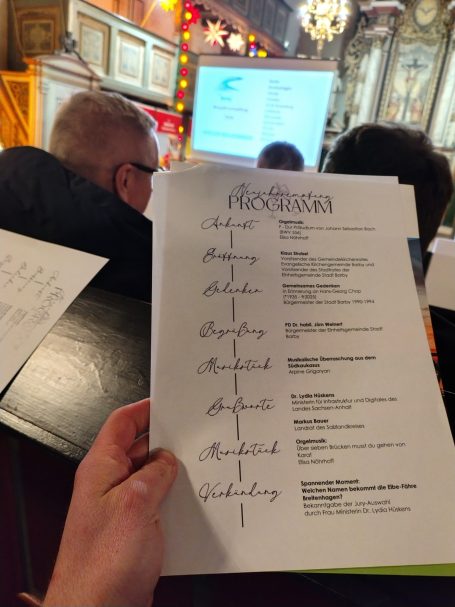 Neujahrsempfang
PROGRAMM
Ankunft
Orgelmusik:
F - Dur Präludium von Johann Sebastian Bach
(BWV 556)
Elisa Nöhrhoff
Eröffnung
Klaus Strobel
Vorsitzender des Gemeindekirchenrates
Evangelische Kirchengemeinde Barby und
Vorsitzender des Stadtrates der
Einheitsgemeinde Stadt Barby
Gedenken
Gemeinsames Gedenken
in Erinnerung an Hans-Georg Chop
Bürgermeister der Stadt Barby 1990-1994
Begrüßung
PD Dr. habil. Jörn Weinert
Bürgermeister der Einheitsgemeinde Stadt
Barby
Musikstück
Musikalische Überraschung aus dem
Südkaukasus
Arpine Grigoryan
Grußworte
Dr. Lydia Hüskens
Ministerin für Infrastruktur und Digitales des
Landes Sachsen-Anhalt
Markus Bauer
Landrat des Salzlandkreises
Musikstück
Orgelmusik:
Über sieben Brücken musst du gehen von
Karat
Elisa Nöhrhoff
Verkündung
Spannender Moment:
Welchen Namen bekommt die Elbe-Fähre
Breitenhagen?
Bekanntgabe der Jury-Auswahl
durch Frau Ministerin Dr. Lydia Hüskens